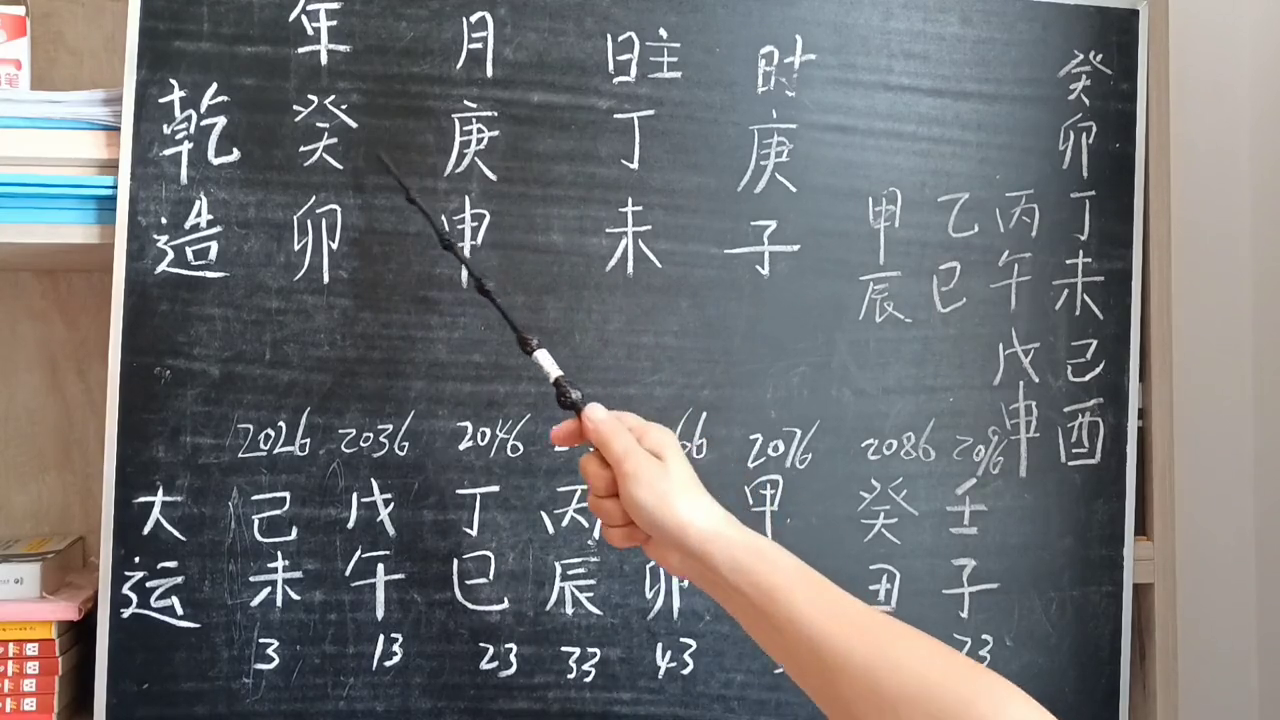 年 月 日主 时
乾 癸 庚 丁 庚
造 卯 申 未 子
癸
卯
甲 乙 丙 丁
辰 巳 午 未
戊 己
申 酉
2026 2036 2046 2076 2086 2096
大 己 戊 丁 丙 甲 癸 壬
运 未 午 巳 辰 卯 丑 子
3 13 23 33 43 73
笔